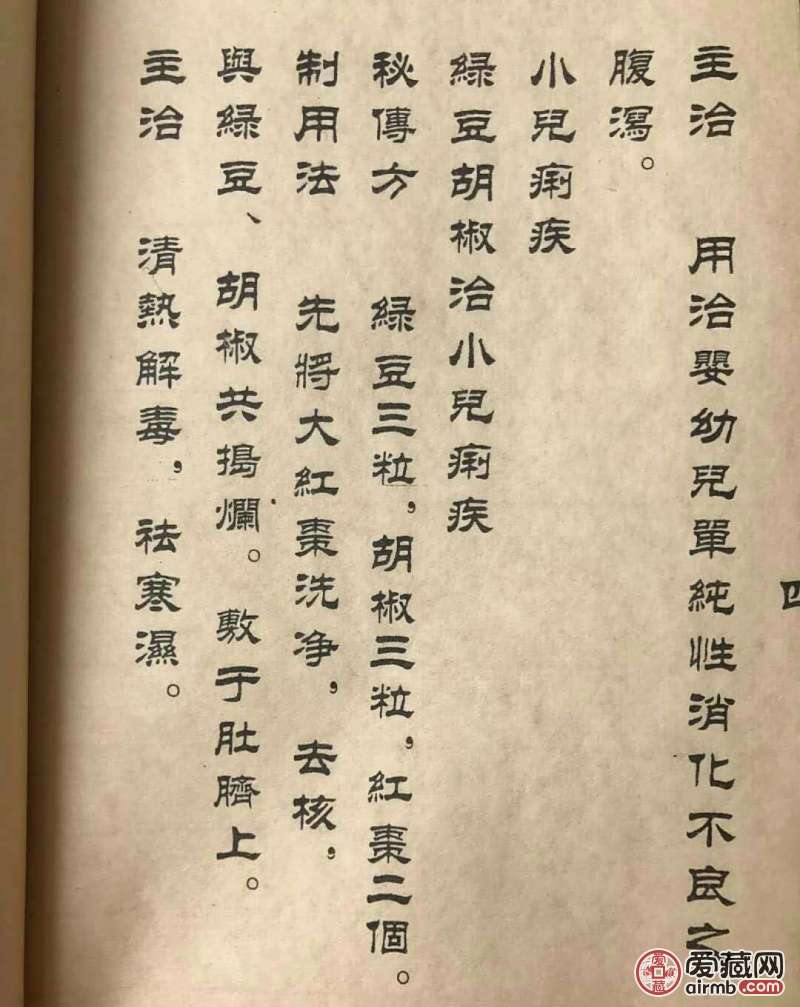 主治　用治嬰幼兒單純性消化不良之
腹瀉。
小兒痢疾
綠豆胡椒治小兒痢疾
秘傳方　綠豆三粒，胡椒三粒，紅棗二個。
制用法　先將大紅棗洗净，去核，
與綠豆、胡椒共搗爛。敷于肚臍上。
主治　清熱解毒，祛寒濕。
四
爱藏网
airmb.com